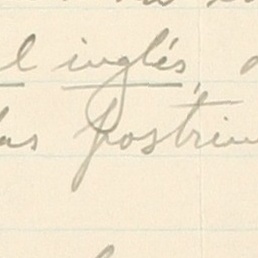 el inglés,
las postrim